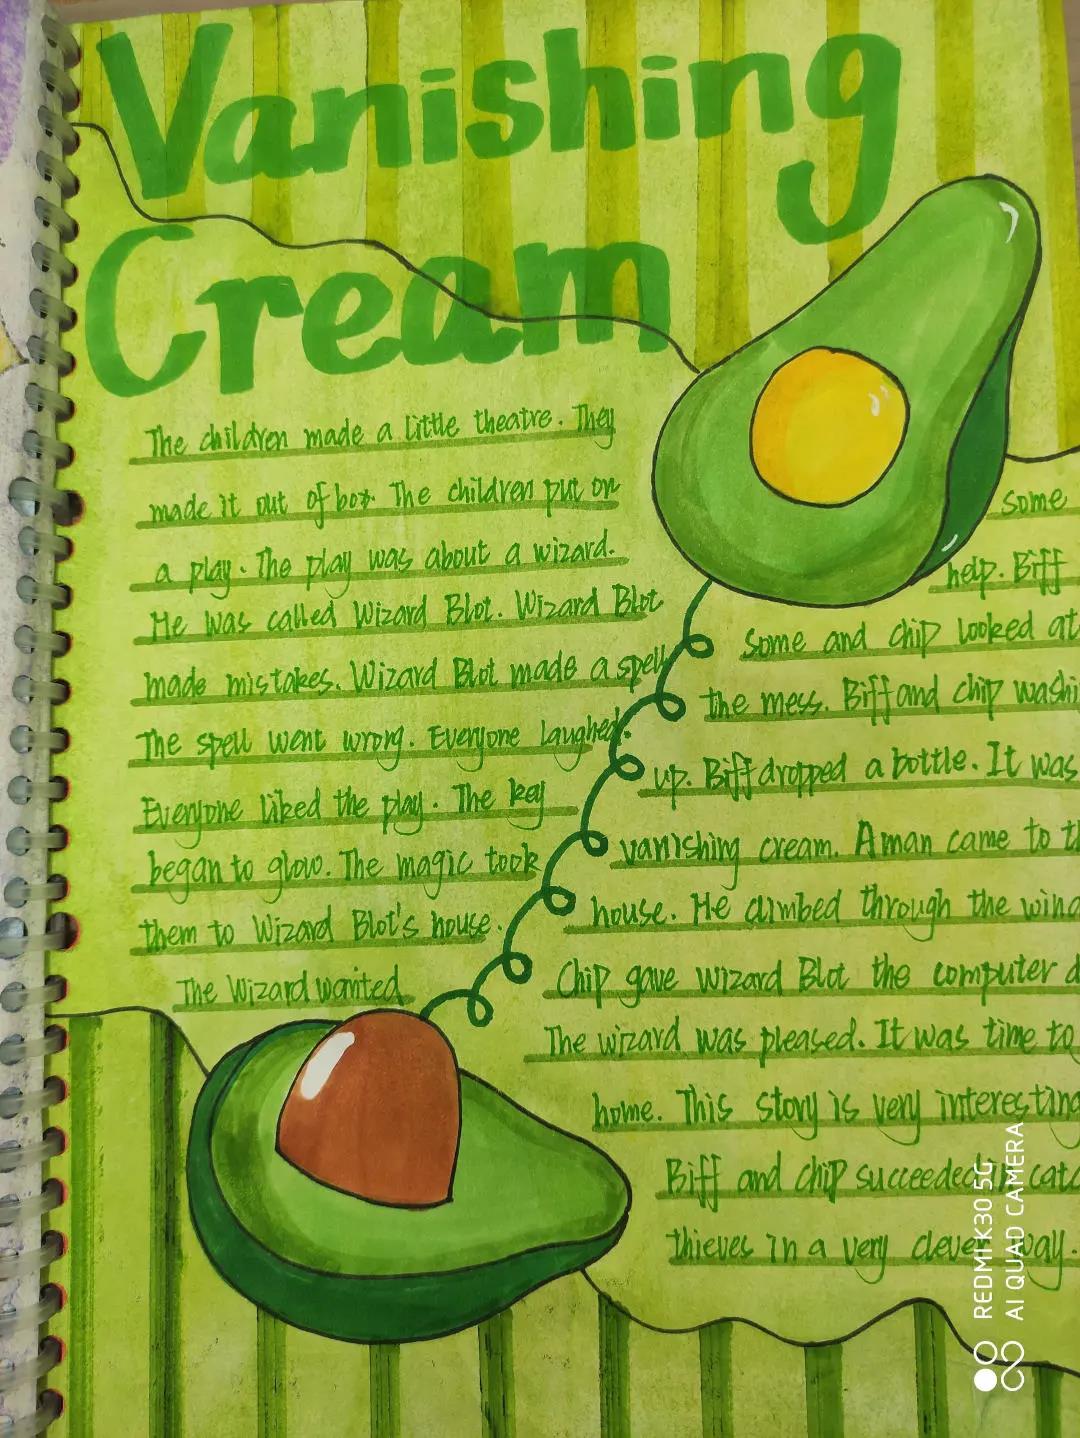 Vanishing
Cream
The children made a little theatre. They
made it out of box. The children put on
a play. The play was about a wizard.
He was called Wizard Blot. Wizard Blot
made mistakes. Wizard Blot made a spell
The spell went wrong. Everyone laughed.
Everyone liked the play. The key
began to glow. The magic took
them to Wizard Blot's house.
The Wizard wanted
some
help. Biff
some and chip looked at
the mess. Biff and chip washi
up. Biff dropped a bottle. It was
vanishing cream. A man came to t
house. He climbed through the wind
Chip gave wizard Blot the computer d
The wizard was pleased. It was time to
home. This story is very interesting
Biff and chip succeeded in catc
thieves in a very clever way.
REDMI K30 5G
AI QUAD CAMERA